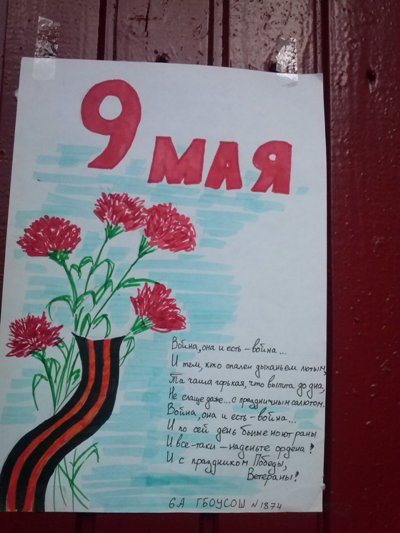 9 МАЯ
Война, она и есть – война...
И тем, кто опален дыханьем лютым,
Та чаша горькая, что выпита до дна,
Не слаще даже... с праздничным салютом.
Война, она и есть – война...
И по сей день былые ноют раны
И все-таки – наденьте ордена!
И с праздником Победы,
Ветераны!
6А ГБОУСОШ №1874